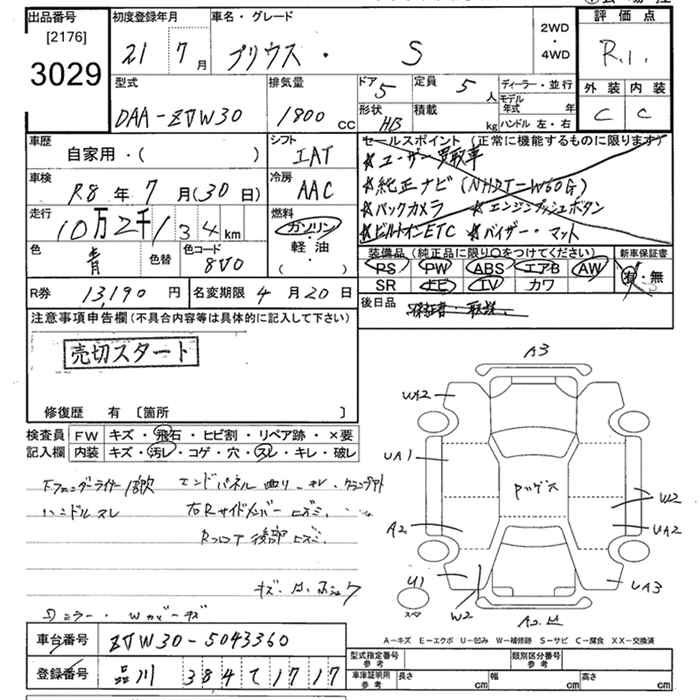 出品番号
[2176]
3029
初度登録年月
21 7 月
車名・グレード
プリウス・ S
2WD
・
4WD
評価点
R.1.
型式
DAA-ZVW30
排気量
1800 cc
ドア 5
定員 5 人
ディーラー・並行
モデル年式 年
ハンドル 左・右
形状 HB
積載 kg
外装 内装
C C
車歴
自家用・( )
シフト
IAT
セールスポイント (正常に機能するものに限ります)
★ユーザー買取車
★純正ナビ(NHDT-W60G)
★バックカメラ ★エンジンプッシュボタン
★ビルトインETC ★バイザー・マット
車検
R8 年 7 月(30 日)
冷房
AAC
走行
10万2千134 km
燃料
ガソリン
・
軽・油
( ・ )
色
青
色替
色コード
8V0
装備品 (純正品に限り〇をつけてください)
PS PW ABS エアB AW
SR ナビ TV カワ
新車保証書
有・無
R券 13,190 円
名変期限 4 月 20 日
後日品 保証書・取説
注意事項申告欄 (不具合内容等は具体的に記入して下さい)
売切スタート
修復歴 有 〔箇所 〕
検査員
記入欄
FW キズ・飛石・ヒビ割・リペア跡・×要
内装 キズ・汚レ・コゲ・穴・スレ・キレ・破レ
エンドパネル曲リ
ハンドルスレ
右Rサイドメンバーヒズミ
Rフロア後部ヒズミ
ミラー・Wカバーキズ
A3
UA2
UA1
A2
U1
W2
W2
UA2
UA3
スペア
車台番号 ZVW30-5043360
登録番号 品川 384 て 1717
A-キズ E-エクボ U-凹み W-補修跡 S-サビ C-腐食 XX-交換済
型式指定番号
参考
類別区分番号
参考
車庫証明用
参考
長さ cm
幅 cm
高さ cm